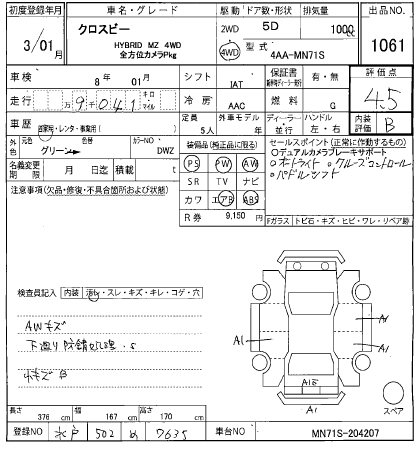 初度登録年月 車名・グレード 駆動 ドア数・形状 排気量 出品NO.
3/01月 クロスビー 2WD 5D 1000 1061
HYBRID MZ 4WD 4WD 型式
全方位カメラPkg 4AA-MN71S
車検 8年 01月 シフト IAT 保証書 有・無 評価点
走行 万9千041キロ マイル 冷房 AAC 燃料 G 4.5
車歴 自家用・レンタ・事業用( ) 定員 5人 外車モデル 年 ディーラー・並行 ハンドル 左・右 内装評価 B
外色 元色 グリーン 色替 カラーNO DWZ 装備品(純正品に限る) セールスポイント(正常に作動するもの)
名義変更期限 月 日迄 積載 t PS PW AW ○デュアルカメラブレーキサポート
・オートライト・クルーズコントロール
・パドルシフト
注意事項(欠品・修復・不具合箇所および状態) SR TV ナビ
カワ エアB ABS
R券 9,150円 Fガラス トビ石・キズ・ヒビ・ワレ・リペア跡
検査員記入 内装 汚れ・スレ・キズ・キレ・コゲ・穴
AWキズ
下廻り防錆処理.S
B
A1
A1
A1
A1
スペア
長さ 376cm 幅 167cm 高さ 170cm
登録NO 水戸 502 め 7635 車台NO MN71S-204207